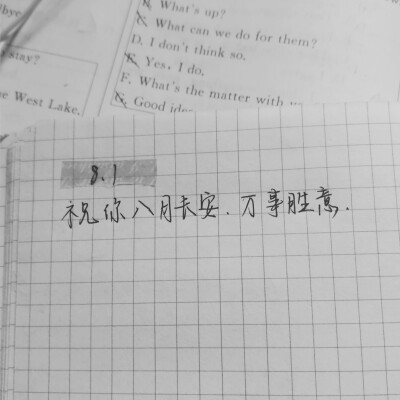 bye
stay?
e West Lake.
B. What's up?
C. What can we do for them?
D. I don't think so.
E. Yes, I do.
F. What's the matter with
G. Good
8.1
祝你八月长安.万事胜意.